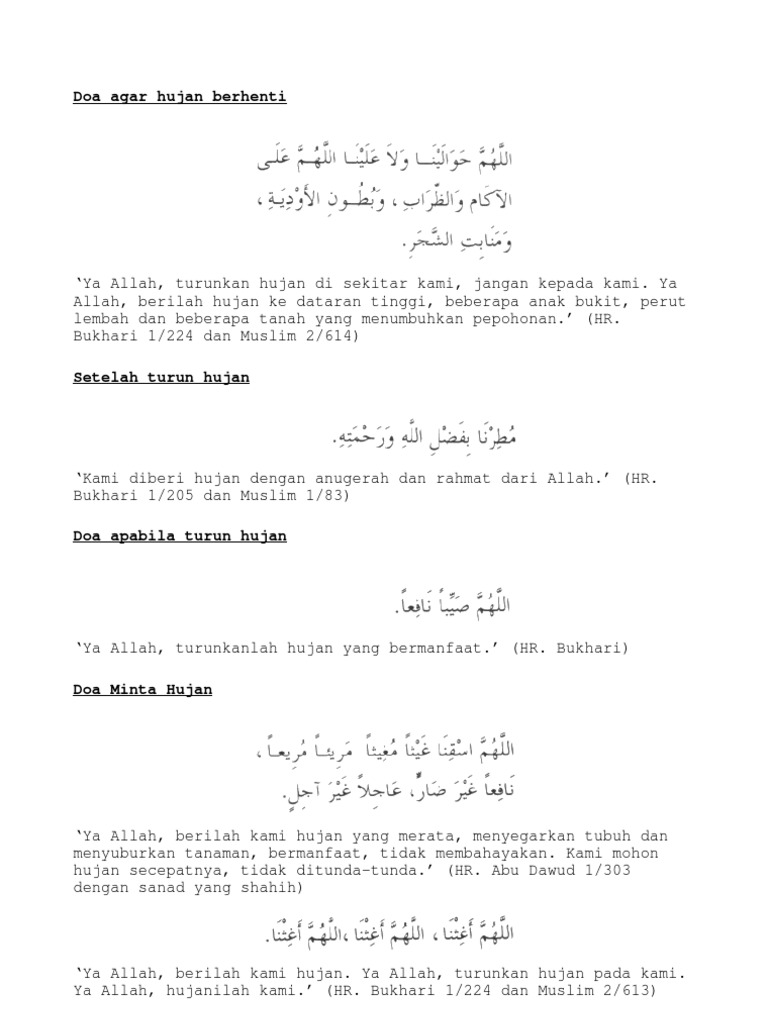 Doa agar hujan berhenti
اللَّهُمَّ حَوَالَيْنَــا وَلاَ عَلَيْنَــا اللَّهُــمَّ عَلَــى
الآكَامِ وَالظِّرَابِ، وَبُطُــونِ الأَوْدِيَــةِ،
وَمَنَابِتِ الشَّجَرِ.
‘Ya Allah, turunkan hujan di sekitar kami, jangan kepada kami. Ya
Allah, berilah hujan ke dataran tinggi, beberapa anak bukit, perut
lembah dan beberapa tanah yang menumbuhkan pepohonan.’ (HR.
Bukhari 1/224 dan Muslim 2/614)
Setelah turun hujan
مُطِرْنَا بِفَضْلِ اللَّهِ وَرَحْمَتِهِ.
‘Kami diberi hujan dengan anugerah dan rahmat dari Allah.’ (HR.
Bukhari 1/205 dan Muslim 1/83)
Doa apabila turun hujan
اللَّهُمَّ صَيِّباً نَافِعاً.
‘Ya Allah, turunkanlah hujan yang bermanfaat.’ (HR. Bukhari)
Doa Minta Hujan
اللَّهُمَّ اسْقِنَا غَيْثاً مُغِيثاً مَرِيئــاً مُرِيعــاً،
نَافِعاً غَيْرَ ضَارٍّ، عَاجِلاً غَيْرَ آجِلٍ.
‘Ya Allah, berilah kami hujan yang merata, menyegarkan tubuh dan
menyuburkan tanaman, bermanfaat, tidak membahayakan. Kami mohon
hujan secepatnya, tidak ditunda-tunda.’ (HR. Abu Dawud 1/303
dengan sanad yang shahih)
اللَّهُمَّ أَغِثْنَا، اللَّهُمَّ أَغِثْنَا، اللَّهُمَّ أَغِثْنَا.
‘Ya Allah, berilah kami hujan. Ya Allah, turunkan hujan pada kami.
Ya Allah, hujanilah kami.’ (HR. Bukhari 1/224 dan Muslim 2/613)